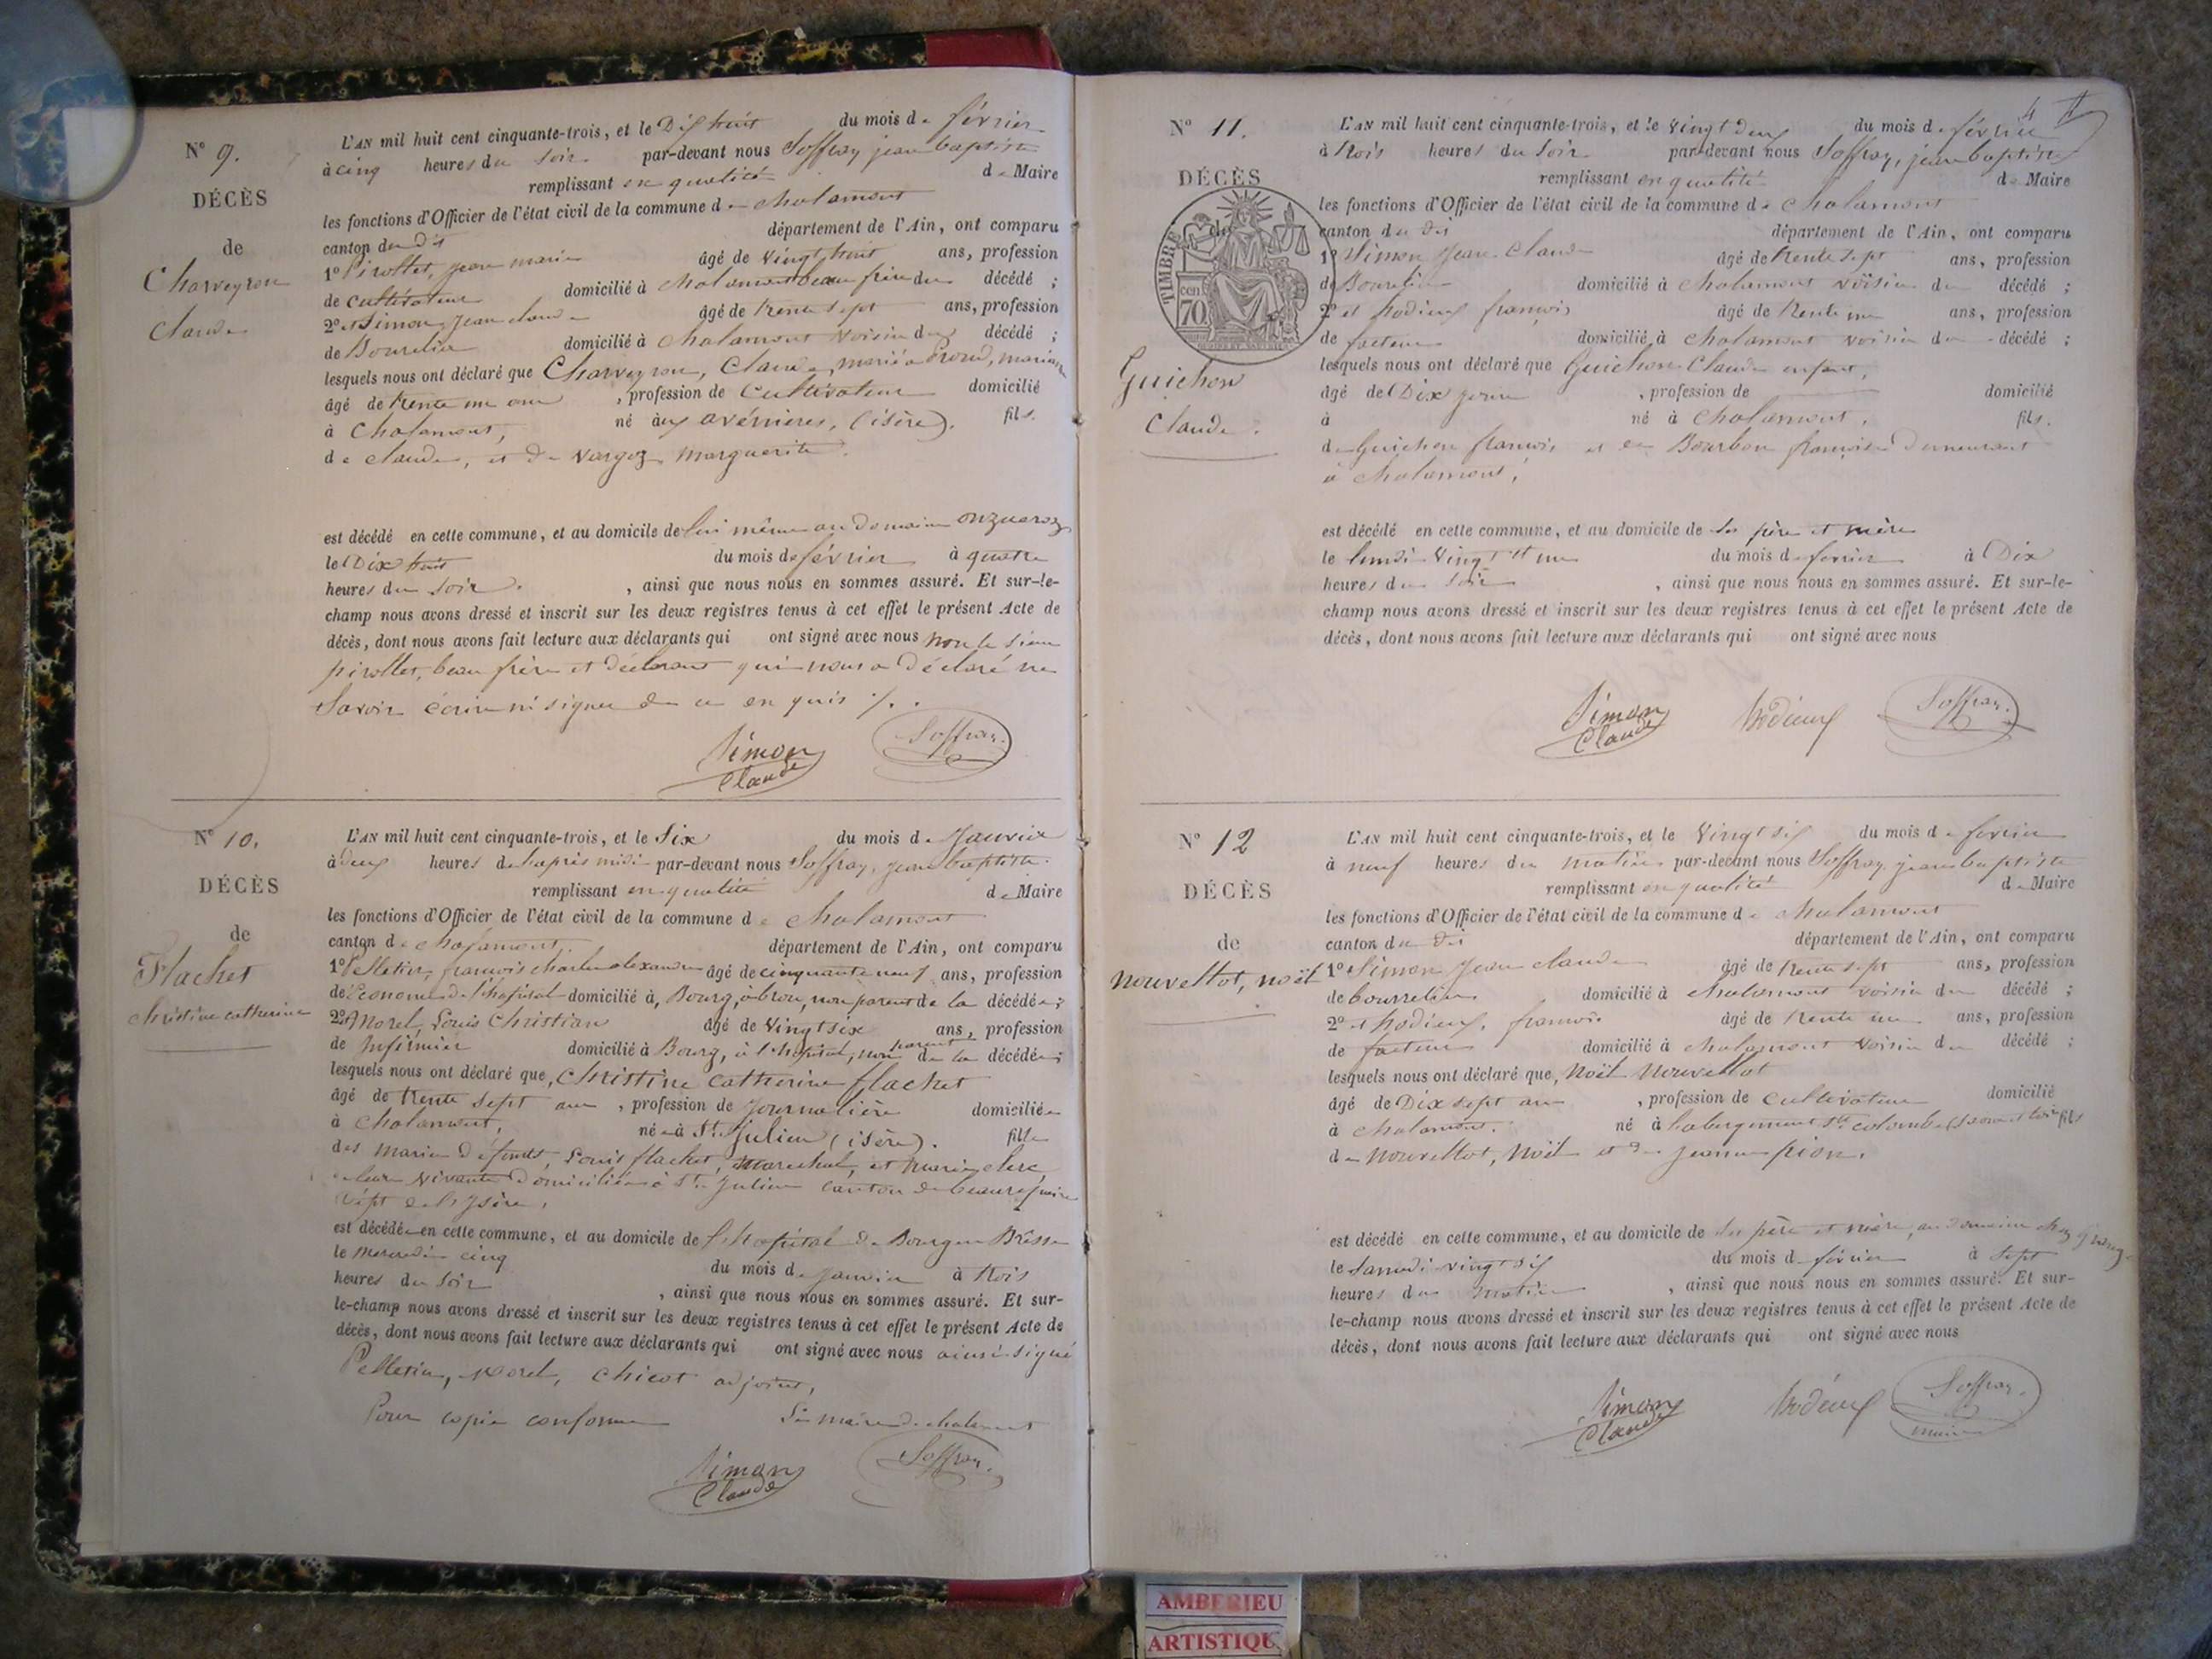 N° 9.
DÉCÈS
de
Charveyron
Claude
L'AN mil huit cent cinquante-trois, et le Dix huit du mois de février
à cinq heures du soir par-devant nous Soffray jean baptiste
remplissant en qualité de Maire
les fonctions d'Officier de l'état civil de la commune de chalamont
canton du dit département de l'Ain, ont comparu
1° Pirollet, jean marie âgé de vingt huit ans, profession
de cultivateur domicilié à chalamont beau frère du décédé ;
2° et Simon, jean claude âgé de trente sept ans, profession
de Bourelier domicilié à chalamont voisin du décédé ;
lesquels nous ont déclaré que Charveyron, Claude, marié a
âgé de trente un ans, profession de Cultivateur domicilié
à Chalamont, né aux avénieres, (isère). fils
de claude, et de Vargoz marguerite.
est décédé en cette commune, et au domicile de lui même au domaine
le Dix huit du mois de février à quatre
heures du soir, ainsi que nous nous en sommes assuré. Et sur-le-
champ nous avons dressé et inscrit sur les deux registres tenus à cet effet le présent Acte de
décès, dont nous avons fait lecture aux déclarants qui ont signé avec nous non le sieur
pirollet, beau frère et déclarant qui nous a déclaré ne
savoir écrire ni signer de ce en quis %.
Simon
Claude
Soffray
N° 10.
DÉCÈS
de
Flachet
christine catherine
L'AN mil huit cent cinquante-trois, et le Six du mois de Janvier
à deux heures de l'après midi par-devant nous Soffray, jean baptiste
remplissant en qualité de Maire
les fonctions d'Officier de l'état civil de la commune de chalamont
canton de chalamont département de l'Ain, ont comparu
1° Pelletier, francois charles alexandre âgé de cinquante neuf ans, profession
de Econome de l'hopital domicilié à, Bourg, à brou, non parent de la décédée ;
2° et Morel, Louis Christian âgé de vingt six ans, profession
de Infirmier domicilié à Bourg, à l'hopital, non parent de la décédée ;
lesquels nous ont déclaré que, Christine catherine flachet
âgé de trente sept ans, profession de Journalière domiciliée
à chalamont, née à St. Julien (isère). fille
des mariés défunts, Louis flachet, marechal, et marie clerc
de leur vivant domiciliés à St. Julien canton de beaurepaire
dépt de l'ysère,
est décédée en cette commune, et au domicile de l'hopital de Bourg en Bresse
le mercredi cinq du mois de janvier à trois
heures du soir, ainsi que nous nous en sommes assuré. Et sur-
le-champ nous avons dressé et inscrit sur les deux registres tenus à cet effet le présent Acte de
décès, dont nous avons fait lecture aux déclarants qui ont signé avec nous ainsi signé
Pelletier, Morel, Chicot adjoint,
Pour copie conforme Le maire de chalamont
Simon
Claude
Soffray
N° 11.
DÉCÈS
de
TIMBRE
70 cen
Guichon
Claude.
L'AN mil huit cent cinquante-trois, et le vingt deux du mois de février
à trois heures du soir par-devant nous Soffray, jean baptiste
remplissant en qualité de Maire
les fonctions d'Officier de l'état civil de la commune de chalamont
canton du dit département de l'Ain, ont comparu
1° Simon Jean Claude âgé de trente sept ans, profession
de Bourelier domicilié à chalamont voisin du décédé ;
2° et trodieux françois âgé de trente un ans, profession
de facteur domicilié à chalamont voisin du décédé ;
lesquels nous ont déclaré que Guichon Claude enfant,
âgé de Dix jours, profession de domicilié
à né à chalamont, fils.
de Guichon francois et de Bourbon françoise demeurant
à chalamont,
est décédé en cette commune, et au domicile de ses père et mère
le lundi vingt et un du mois de fevrier à Dix
heures du soir, ainsi que nous nous en sommes assuré. Et sur-le-
champ nous avons dressé et inscrit sur les deux registres tenus à cet effet le présent Acte de
décès, dont nous avons fait lecture aux déclarants qui ont signé avec nous
Simon
Claude
trodieux
Soffray
N° 12
DÉCÈS
de
nouvellot, noël
L'AN mil huit cent cinquante-trois, et le vingt six du mois de fevrier
à neuf heures du matin par-devant nous Soffray jean baptiste
remplissant en qualité de Maire
les fonctions d'Officier de l'état civil de la commune de chalamont
canton du dit département de l'Ain, ont comparu
1° Simon Jean claude âgé de trente sept ans, profession
de bourrelier domicilié à chalamont voisin du décédé ;
2° et trodieux, francois âgé de trente un ans, profession
de facteur domicilié à chalamont voisin du décédé ;
lesquels nous ont déclaré que, Noël nouvellot
âgé de Dix sept ans, profession de cultivateur domicilié
à chalamont. né à labergement ste colombe (saone et loire) fils
de nouvellot, Noël et de jeanne pion.
est décédé en cette commune, et au domicile de ses père et mère, au domaine chez
le samedi vingt six du mois de février à sept
heures du matin, ainsi que nous nous en sommes assuré. Et sur-
le-champ nous avons dressé et inscrit sur les deux registres tenus à cet effet le présent Acte de
décès, dont nous avons fait lecture aux déclarants qui ont signé avec nous
Simon
Claude
trodieux
Soffray
maire
AMBERIEU
ARTISTIQU